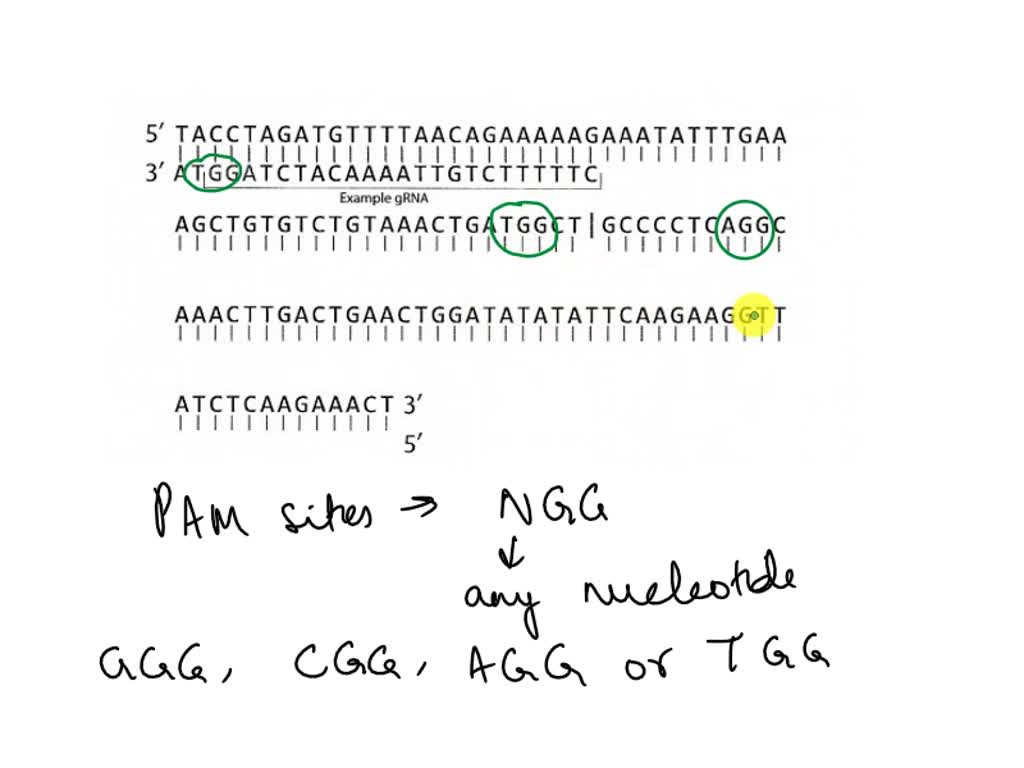 5′ TACCTAGATGTTTTAACAGAAAAAGAAATATTTGAA
3′ ATGGATCTACAAAATTGTCTTTTTC
Example gRNA
AGCTGTGTCTGTAAACTGATGGCT|GCCCCTCAGGC
AAACTTGACTGAACTGGATATATATTCAAGAAGGTT
ATCTCAAGAAACT 3′
5′
PAM sites → NGG
↓
any nucleotide
GGG, CGG, AGG or TGG